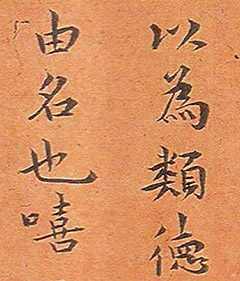 以為類德
由名也嘻